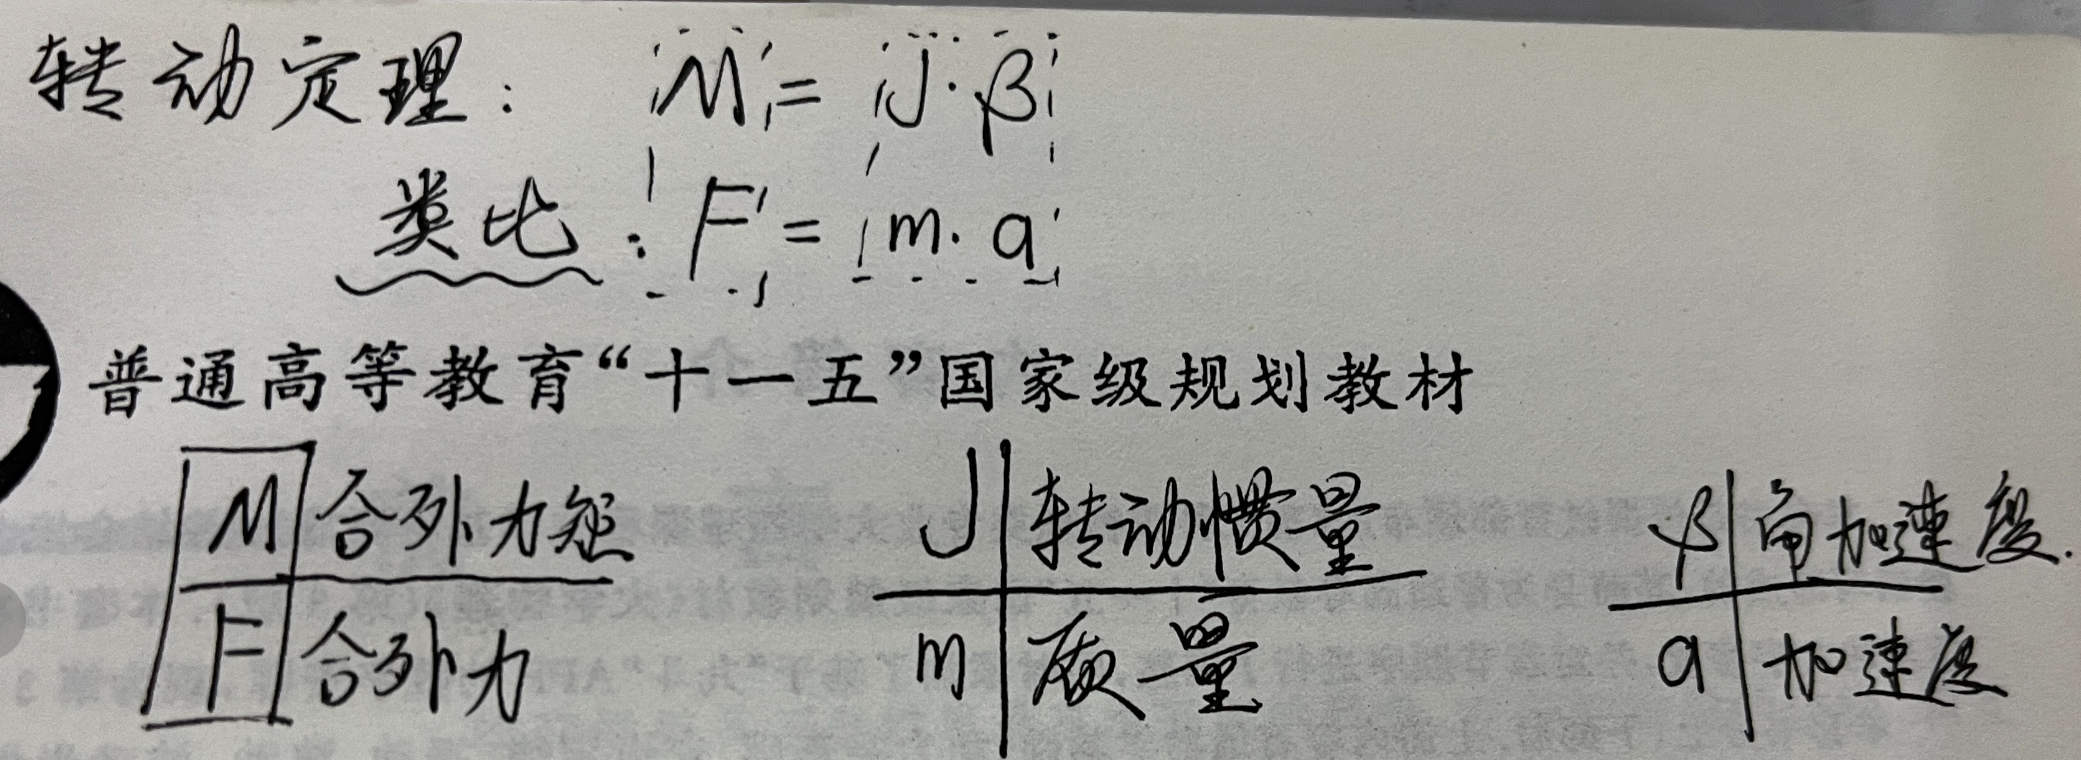 转动定理：M = J·β
类比：F = m·a
普通高等教育“十一五”国家级规划教材
M 合外力矩 J 转动惯量 β 角加速度.
F 合外力 m 质量 a 加速度